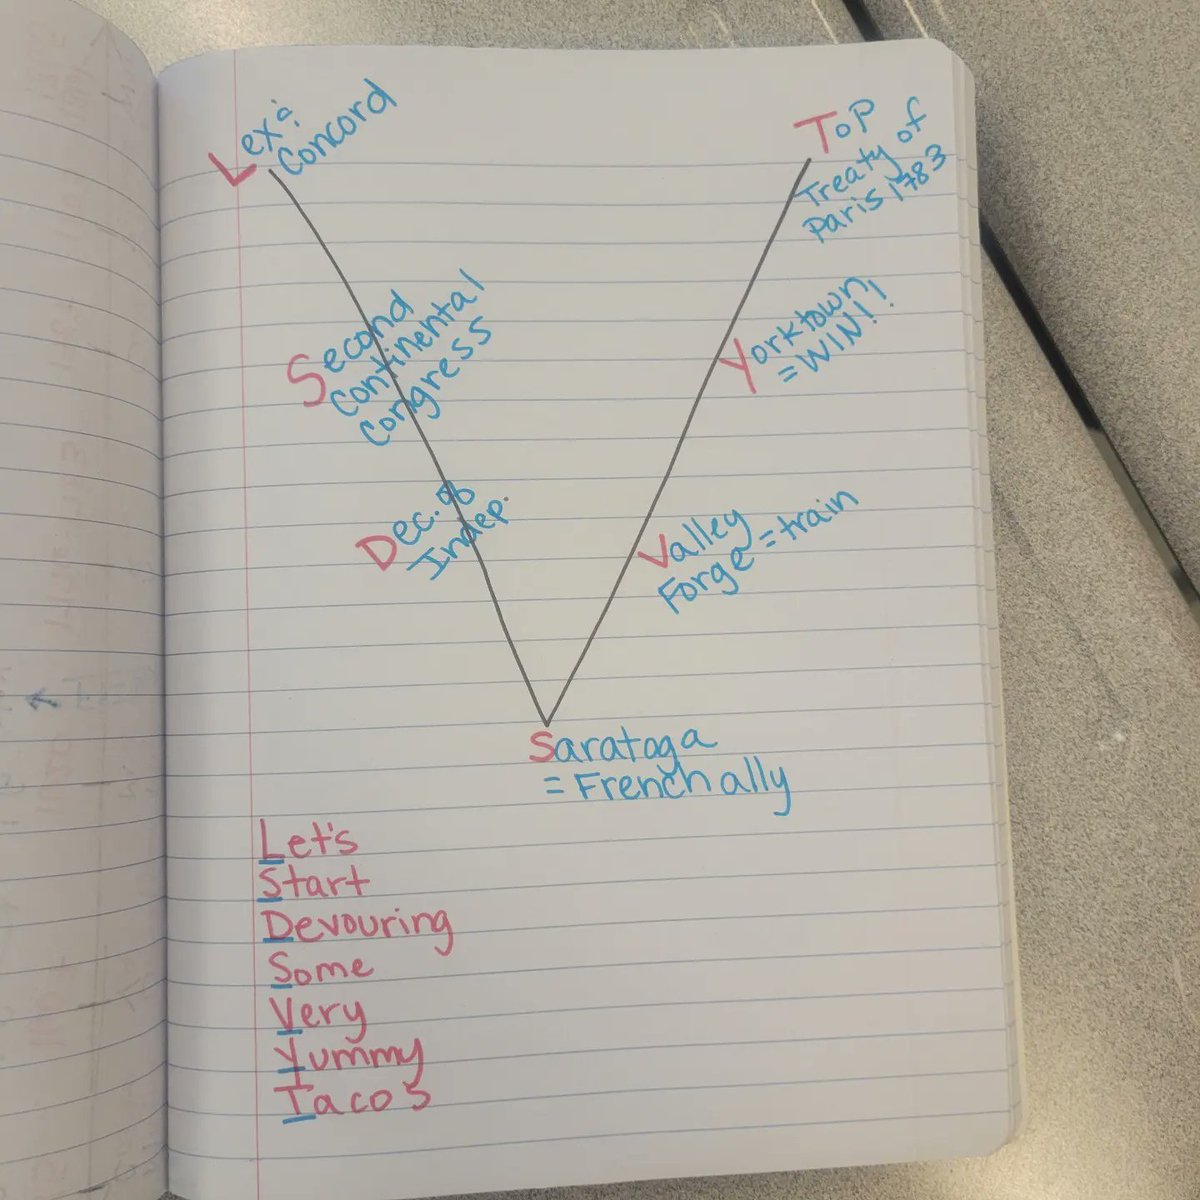 Lex &
Concord
Second
Continental
Congress
Dec. of
Indep.
Saratoga
= French ally
Valley
Forge = train
Yorktown
= WIN!!
ToP
Treaty of
Paris 1783
Let's
Start
Devouring
Some
Very
Yummy
Tacos